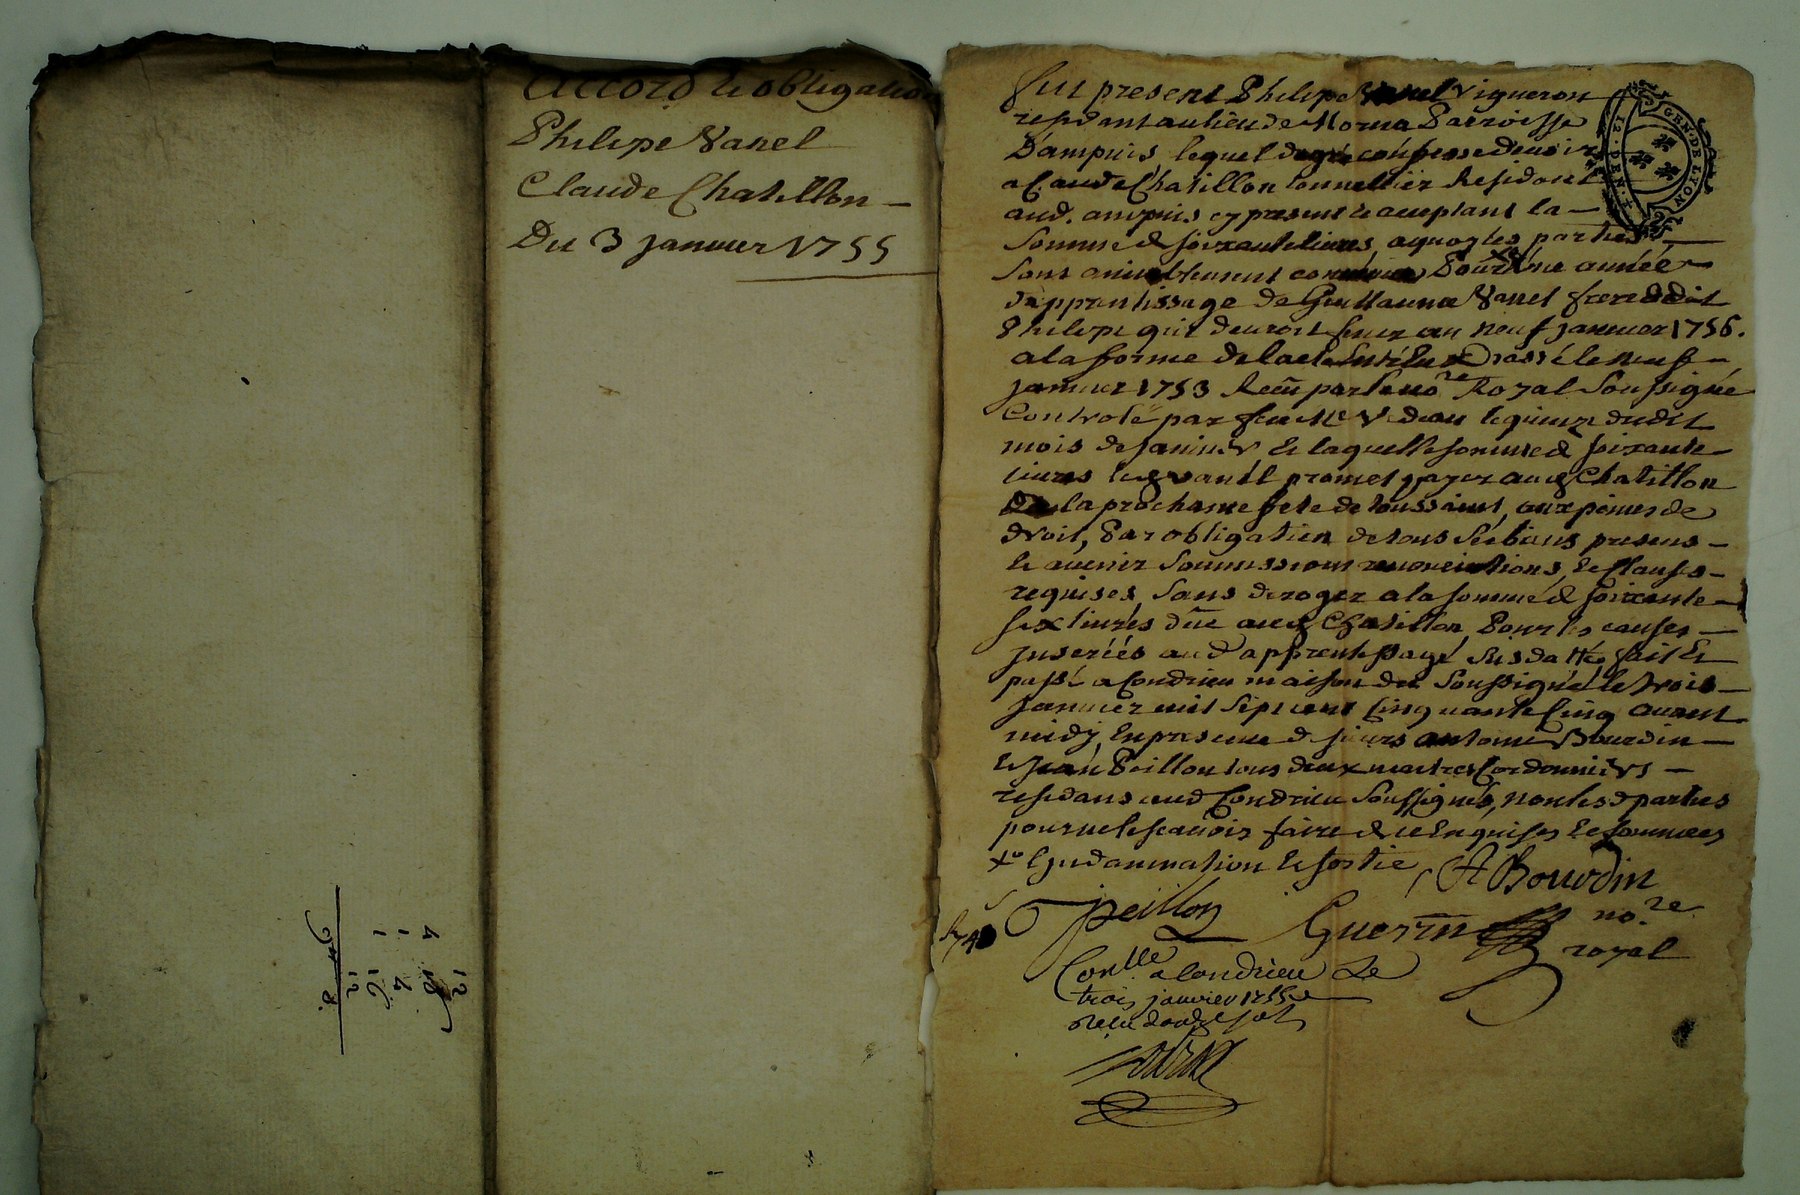 Accord & obligation
Philipe Vanel
Claude Chatillon
Du 3 janvier 1755
fut present Philipe Vanel Vigneron
residant au lieu de Parroisse
D'ampuis, lequel de gré confesse devoir
a Claude Chatillon tonnellier Residant
aud. ampuis cy present & acceptant la
somme de soixante livres, a quoy les parties
sont Pour une année
d'apprentissage de Guillaume Vanel frere dudit
Philipe qui devroit finir au neuf janvier 1756.
a la forme de passé le neuf
janvier 1753 Receu par le no.re Royal soussigné
Controlé par feu Me le quinze dudit
mois de janvier & laquelle somme de soixante
livres led vanel promet payer aud Chatillon
a la prochaine fete de toussaint, aux peines de
droit, Par obligation de tous ses biens presens
& avenir soumissions renonciations, & clauses
requises, sans deroger a la somme de soixante
six livres düe aud Chatillon, Pour les causes
Inserées aud apprentissage susdatté, fait &
passé a Condrieu maison du soussigné le trois
janvier mil sept cent cinquante cinq avant
midy, En presence de sieurs antoine Bourdin
& Jean Peillon tous deux maitres Cordonniers
residans aud Condrieu soussignés, non lesd parties
pour ne le scavoir faire de ce Enquises & sommées
& sortie
A Bourdin
J peillon
Guerin
no.re
royal
Con.lle a Condrieu Le
trois janvier 1755
receu douze sols
GEN. DE LYON